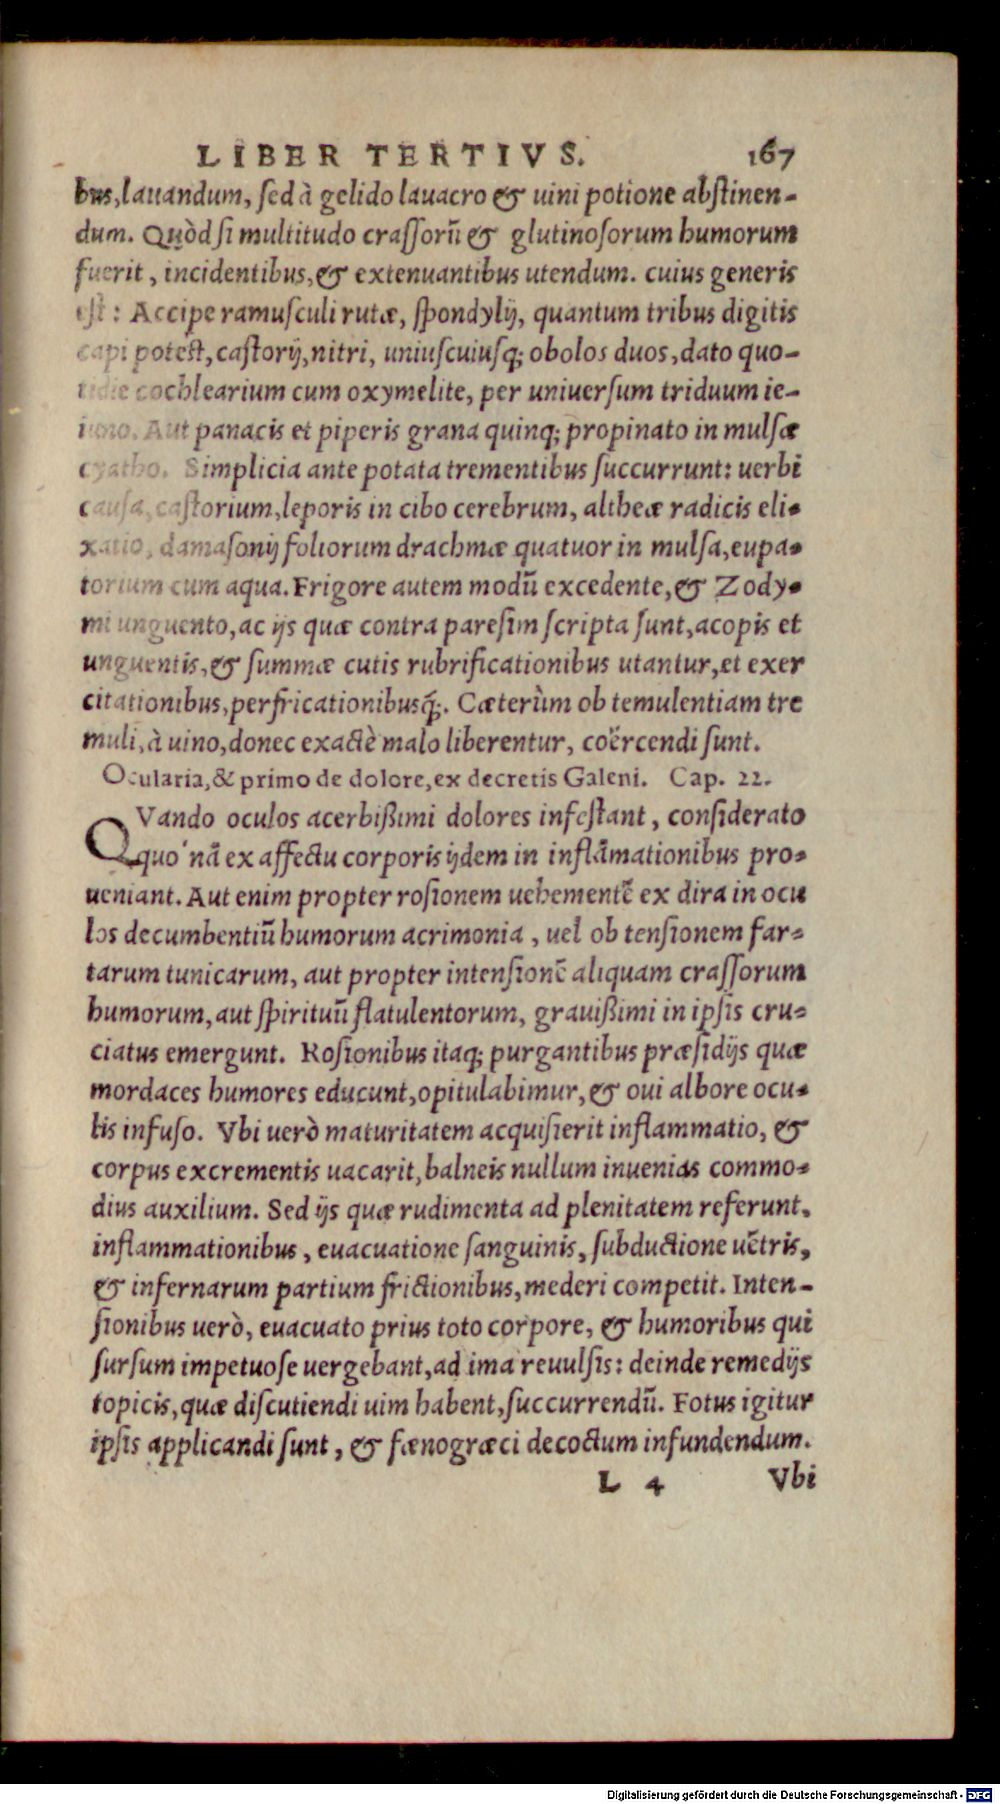 LIBER TERTIVS. 167
bus, lauandum, sed à gelido lauacro & uini potione abstinen-
dum. Quòd si multitudo crassorū & glutinosorum humorum
fuerit, incidentibus, & extenuantibus utendum. cuius generis
est: Accipe ramusculi rutæ, spondylij, quantum tribus digitis
capi potest, castorij, nitri, uniuscuiusq; obolos duos, dato quo-
tidie cochlearium cum oxymelite, per uniuersum triduum ie-
iuno. Aut panacis et piperis grana quinq; propinato in mulsæ
cyatho. Simplicia ante potata trementibus succurrunt: uerbi
causa, castorium, leporis in cibo cerebrum, altheæ radicis eli-
xatio, damasonij foliorum drachmæ quatuor in mulsa, eupa-
torium cum aqua. Frigore autem modū excedente, & Zody-
mi unguento, ac ijs quæ contra paresim scripta sunt, acopis et
unguentis, & summæ cutis rubrificationibus utantur, et exer
citationibus, perfricationibusq́;. Cæterùm ob temulentiam tre
muli, à uino, donec exactè malo liberentur, coërcendi sunt.
Ocularia, & primo de dolore, ex decretis Galeni. Cap. 22.
QVando oculos acerbißimi dolores infestant, considerato
quo'nā ex affectu corporis ijdem in inflāmationibus pro-
ueniant. Aut enim propter rosionem uehementē ex dira in ocu
los decumbentiū humorum acrimonia, uel ob tensionem far-
tarum tunicarum, aut propter intensionē aliquam crassorum
humorum, aut spirituū flatulentorum, grauißimi in ipsis cru-
ciatus emergunt. Rosionibus itaq; purgantibus præsidijs quæ
mordaces humores educunt, opitulabimur, & oui albore ocu-
lis infuso. Vbi uerò maturitatem acquisierit inflammatio, &
corpus excrementis uacarit, balneis nullum inuenias commo-
dius auxilium. Sed ijs quæ rudimenta ad plenitatem referunt,
inflammationibus, euacuatione sanguinis, subductione uētris,
& infernarum partium frictionibus, mederi competit. Inten-
sionibus uerò, euacuato prius toto corpore, & humoribus qui
sursum impetuose uergebant, ad ima reuulsis: deinde remedijs
topicis, quæ discutiendi uim habent, succurrendū. Fotus igitur
ipsis applicandi sunt, & fœnogræci decoctum infundendum.
L 4 Vbi
Digitalisierung gefördert durch die Deutsche Forschungsgemeinschaft - DFG